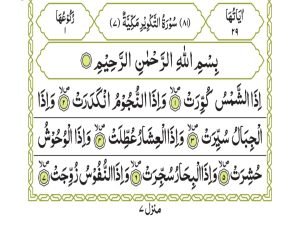 اٰيَاتُهَا ٢٩ (٨١) سُوْرَةُ التَّكْوِيْرِ مَكِّيَّةٌ (٧) رُكُوْعُهَا ١
بِسْمِ اللّٰهِ الرَّحْمٰنِ الرَّحِيْمِ
اِذَا الشَّمْسُ كُوِّرَتْ ۙ‏﴿۱﴾ وَاِذَا النُّجُوْمُ انْكَدَرَتْ ۙ‏﴿۲﴾ وَاِذَا
الْجِبَالُ سُيِّرَتْ ۙ‏﴿۳﴾ وَاِذَا الْعِشَارُ عُطِّلَتْ ۙ‏﴿۴﴾ وَاِذَا الْوُحُوْشُ
حُشِرَتْ ۙ‏﴿۵﴾ وَاِذَا الْبِحَارُ سُجِّرَتْ ۙ‏﴿۶﴾ وَاِذَا النُّفُوْسُ زُوِّجَتْ ۙ‏﴿۷﴾
منزل ٧